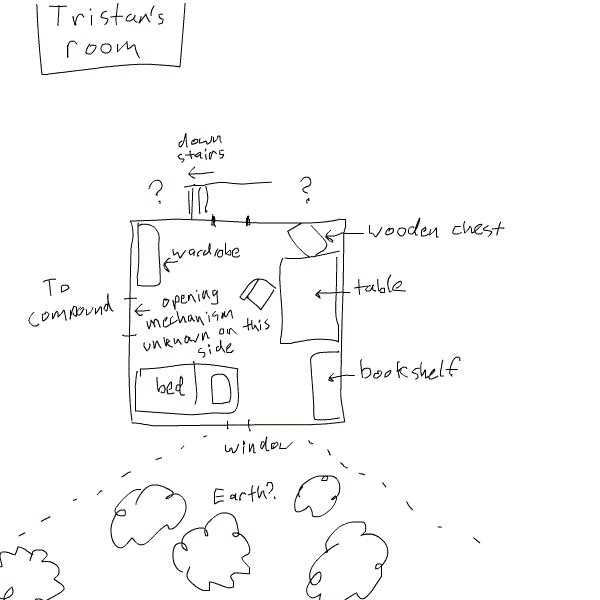 Tristan's
room
down
stairs
?
?
wooden chest
wardrobe
To
compound
opening
mechanism
unknown on this
side
table
bed
bookshelf
window
Earth?